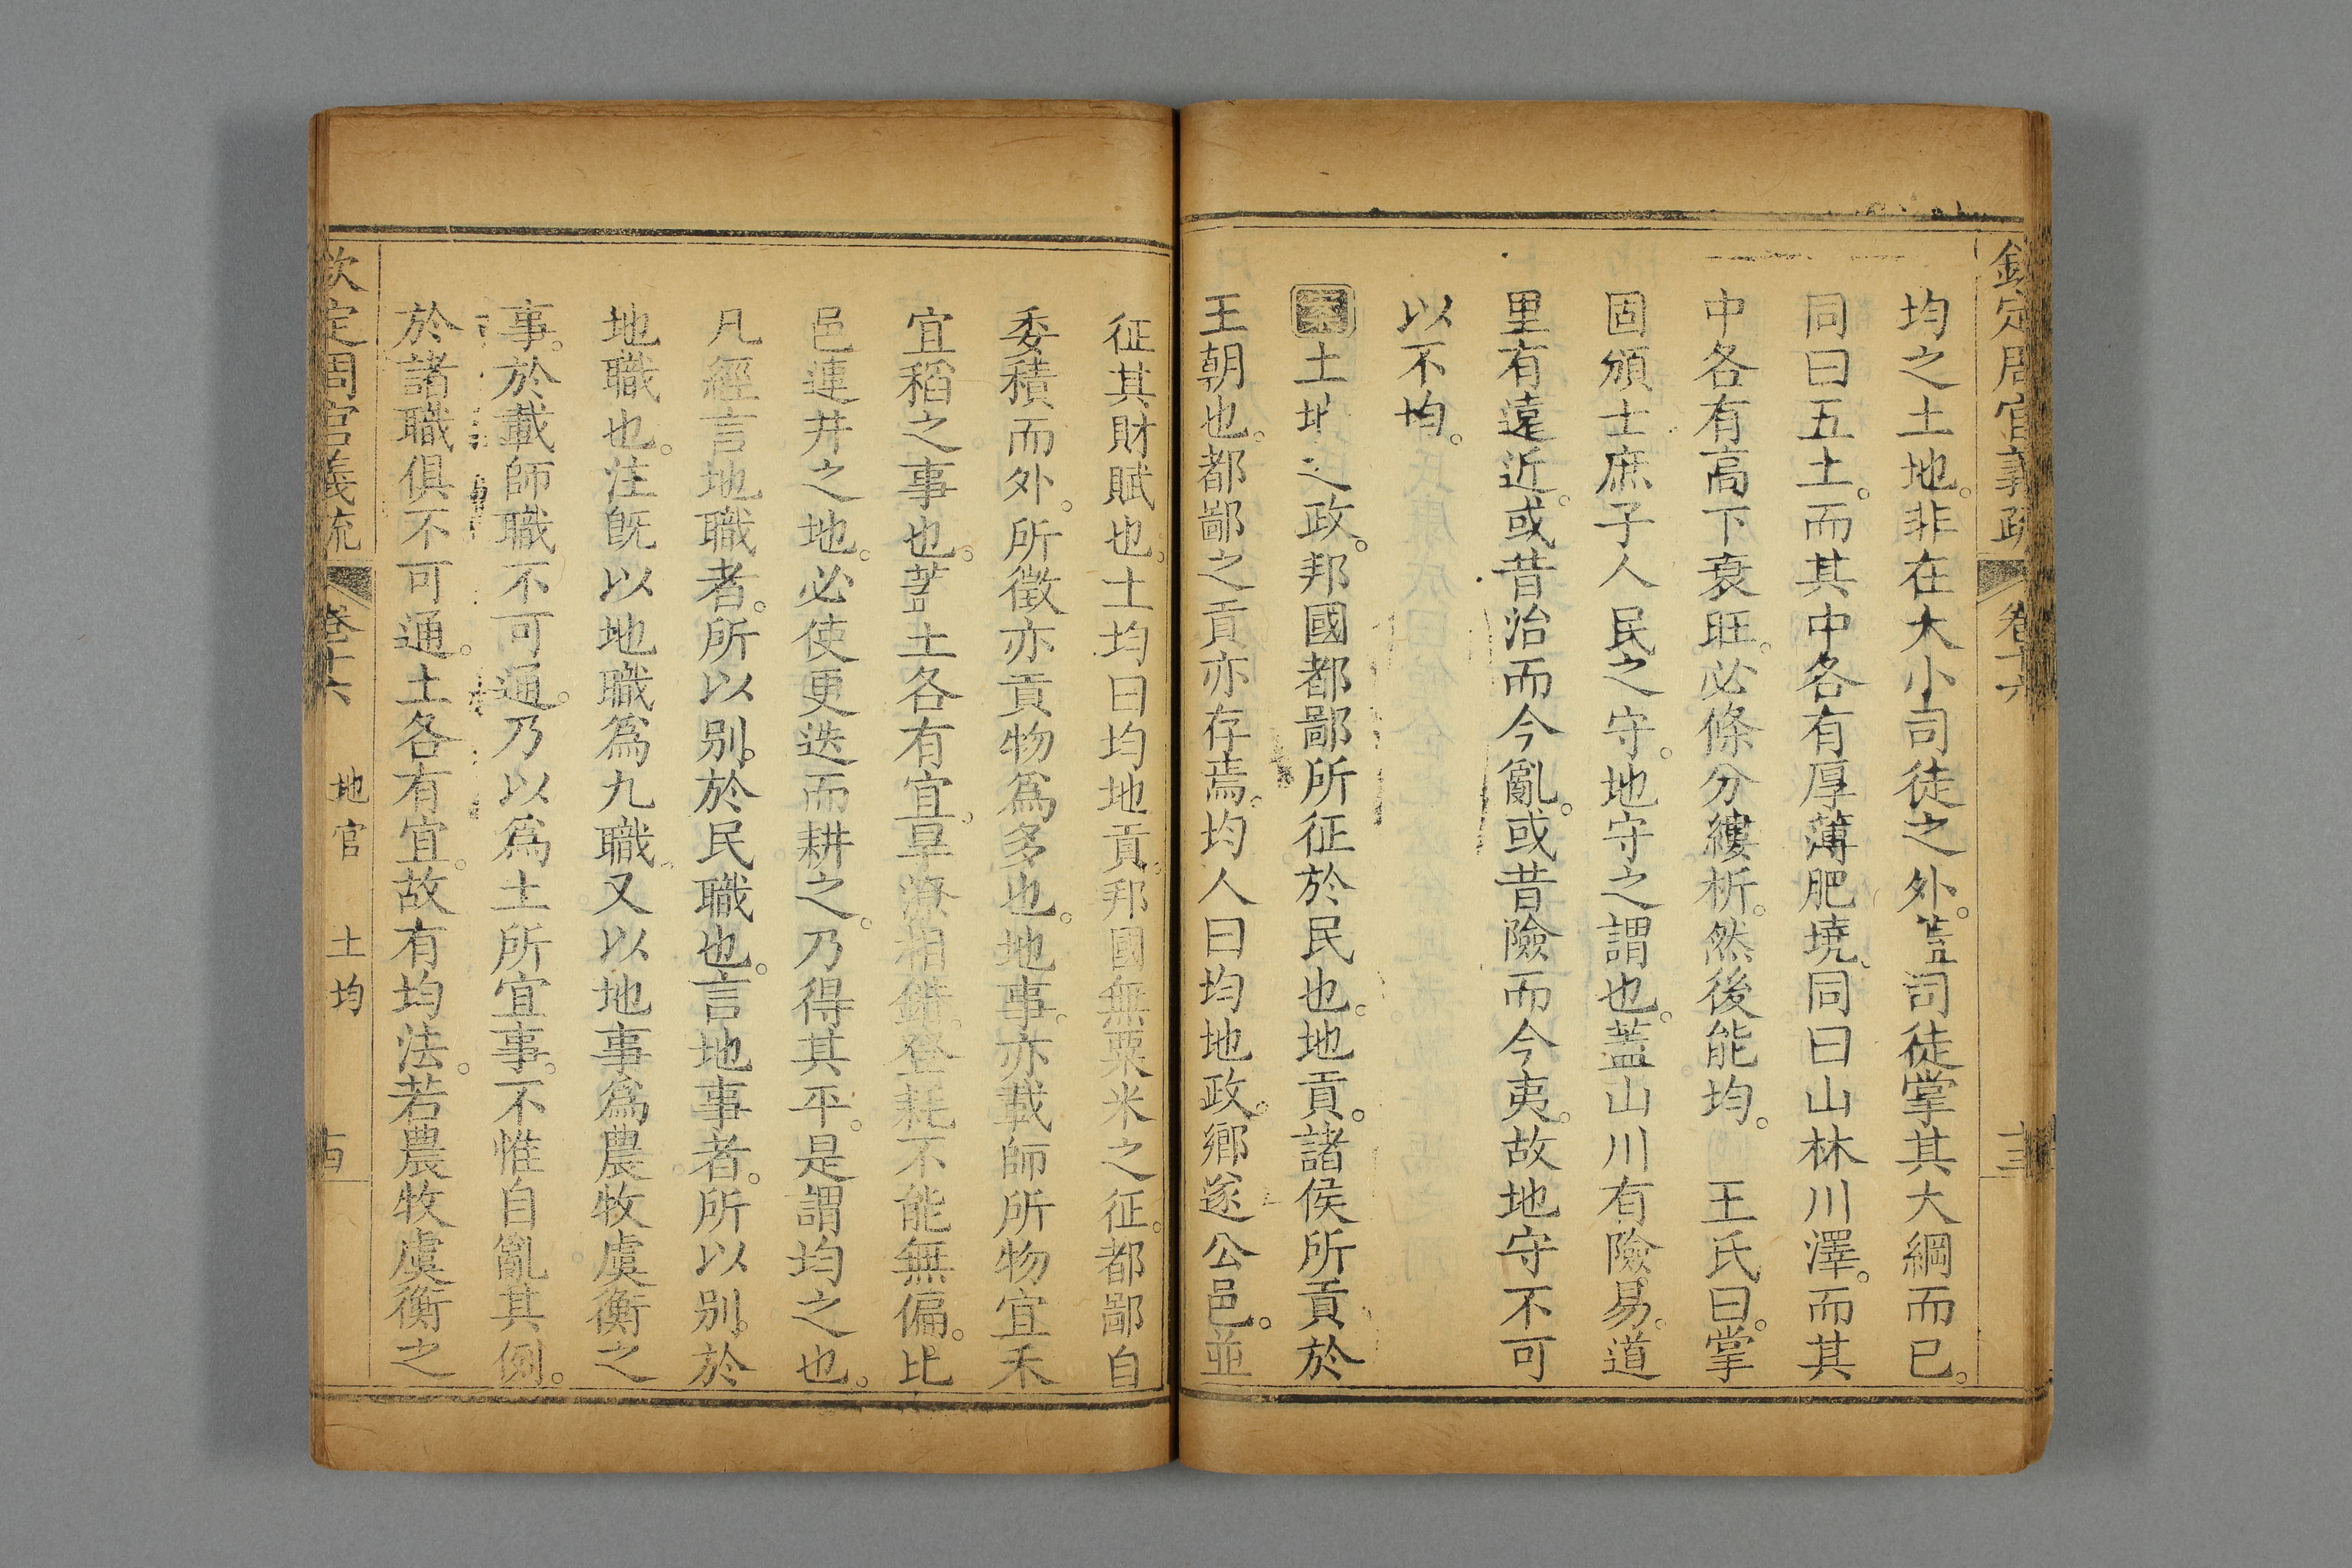 欽定周官義疏 卷十六 十三
均之土地。非在大小司徒之外。葢司徒掌其大綱而已。
同曰五土。而其中各有厚薄肥墝。同曰山林川澤。而其
中各有高下衰旺。必條分縷析。然後能均。 王氏曰。掌
固頒士庶子人民之守。地守之謂也。葢山川有險易。道
里有遠近。或昔治而今亂。或昔險而今夷。故地守不可
以不均。
案土地之政。邦國都鄙所征於民也。地貢。諸侯所貢於
王朝也。都鄙之貢亦存焉。均人曰均地政。鄉遂公邑。並
征其財賦也。土均曰均地貢。邦國無粟米之征。都鄙自
委積而外。所徵亦貢物為多也。地事。亦載師所物宜禾
宜稻之事也。葢土各有宜。旱潦相錯。登耗不能無偏。比
邑連井之地。必使更迭而耕之。乃得其平。是謂均之也。
凡經言地職者。所以别。於民職也。言地事者。所以别。於
地職也。注既以地職為九職。又以地事為農牧虞衡之
事。於載師職不可通。乃以為土所宜事。不惟自亂其例。
於諸職俱不可通。土各有宜。故有均法。若農牧虞衡之
欽定周官義疏 卷十六 地官 土均